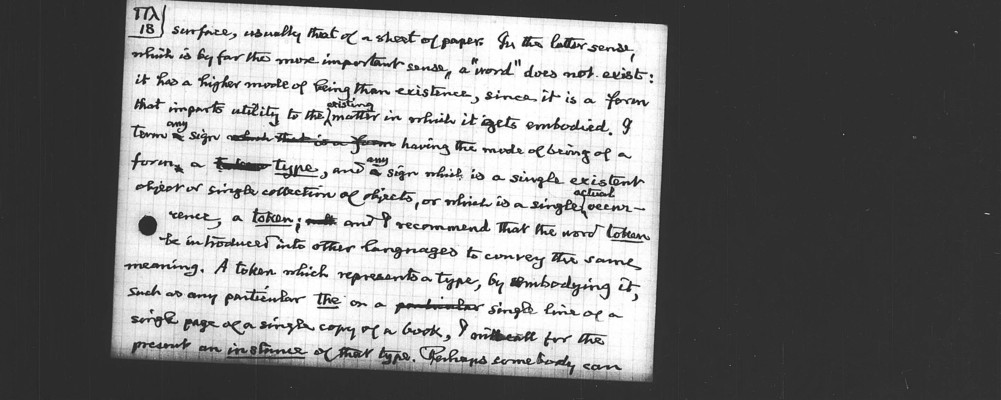 ΠΛ
18
surface, usually that of a sheet of paper. In the latter sense,
which is by far the more important sense, a "word" does not exist:
it has a higher mode of being than existence, since it is a form
that imparts utility to the existing matter in which it gets embodied. I
term any sign which that is a form having the mode of being of a
form, a type, and any sign which is a single existent
object or single collection of objects, or which is a single actual occur-
rence, a token; and I recommend that the word token
be introduced into other languages to convey the same
meaning. A token which represents a type, by embodying it,
such as any particular the on a particular single line of a
single page of a single copy of a book, I will call for the
present an instance of that type. Perhaps somebody can